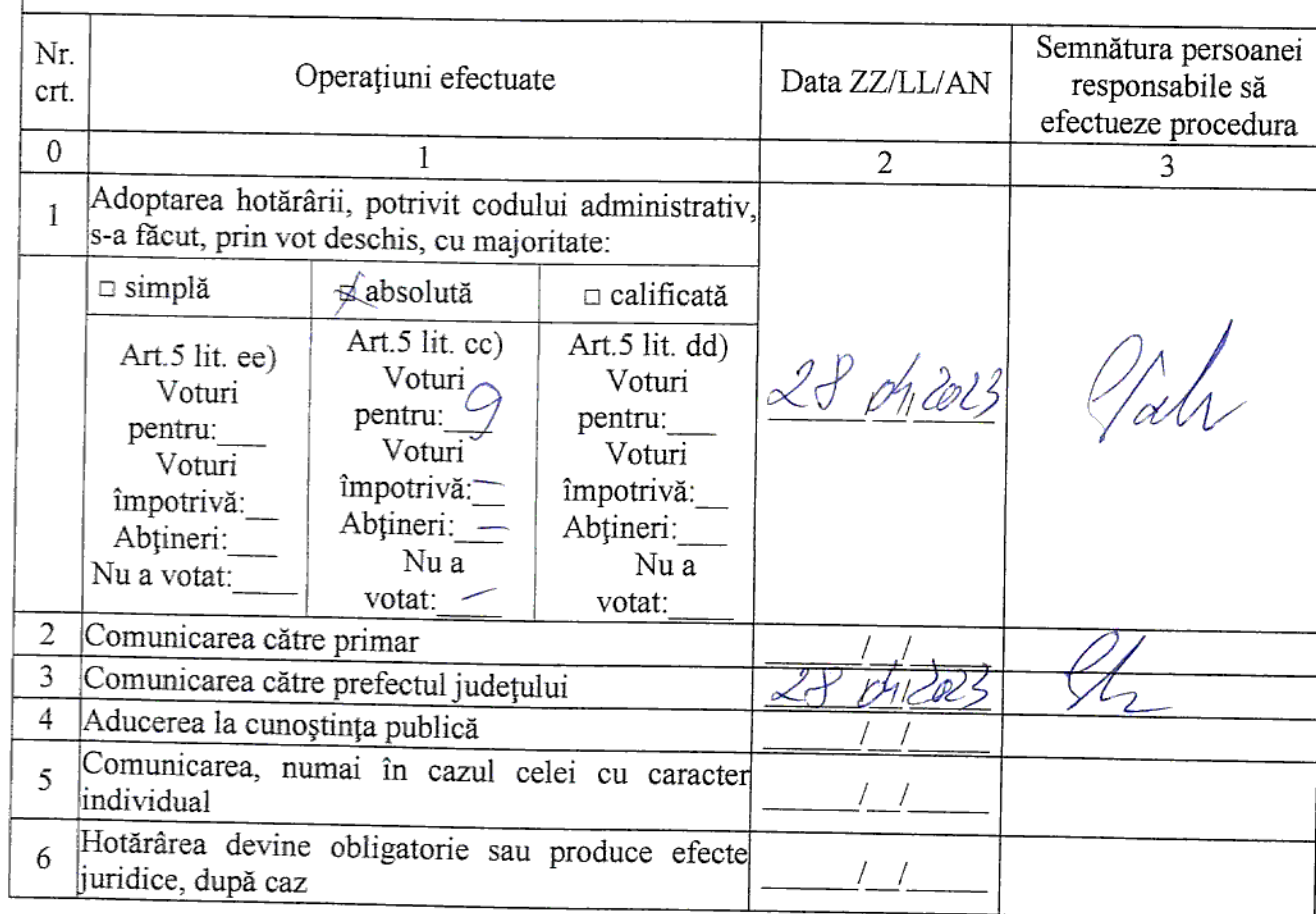 Nr. crt.
Operaţiuni efectuate
Data ZZ/LL/AN
Semnătura persoanei
responsabile să
efectueze procedura
0
1
2
3
1
Adoptarea hotărârii, potrivit codului administrativ,
s-a făcut, prin vot deschis, cu majoritate:
□ simplă
☒ absolută
□ calificată
Art.5 lit. ee)
Voturi
pentru:___
Voturi
împotrivă:__
Abţineri:___
Nu a votat:____
Art.5 lit. cc)
Voturi
pentru: 9
Voturi
împotrivă: –
Abţineri: –
Nu a
votat: –
Art.5 lit. dd)
Voturi
pentru:___
Voturi
împotrivă:__
Abţineri:___
Nu a
votat:____
28 04 2023
2
Comunicarea către primar
____/__/____
3
Comunicarea către prefectul judeţului
28 04 2023
4
Aducerea la cunoştinţa publică
____/__/____
5
Comunicarea, numai în cazul celei cu caracter
individual
____/__/____
6
Hotărârea devine obligatorie sau produce efecte
juridice, după caz
____/__/____